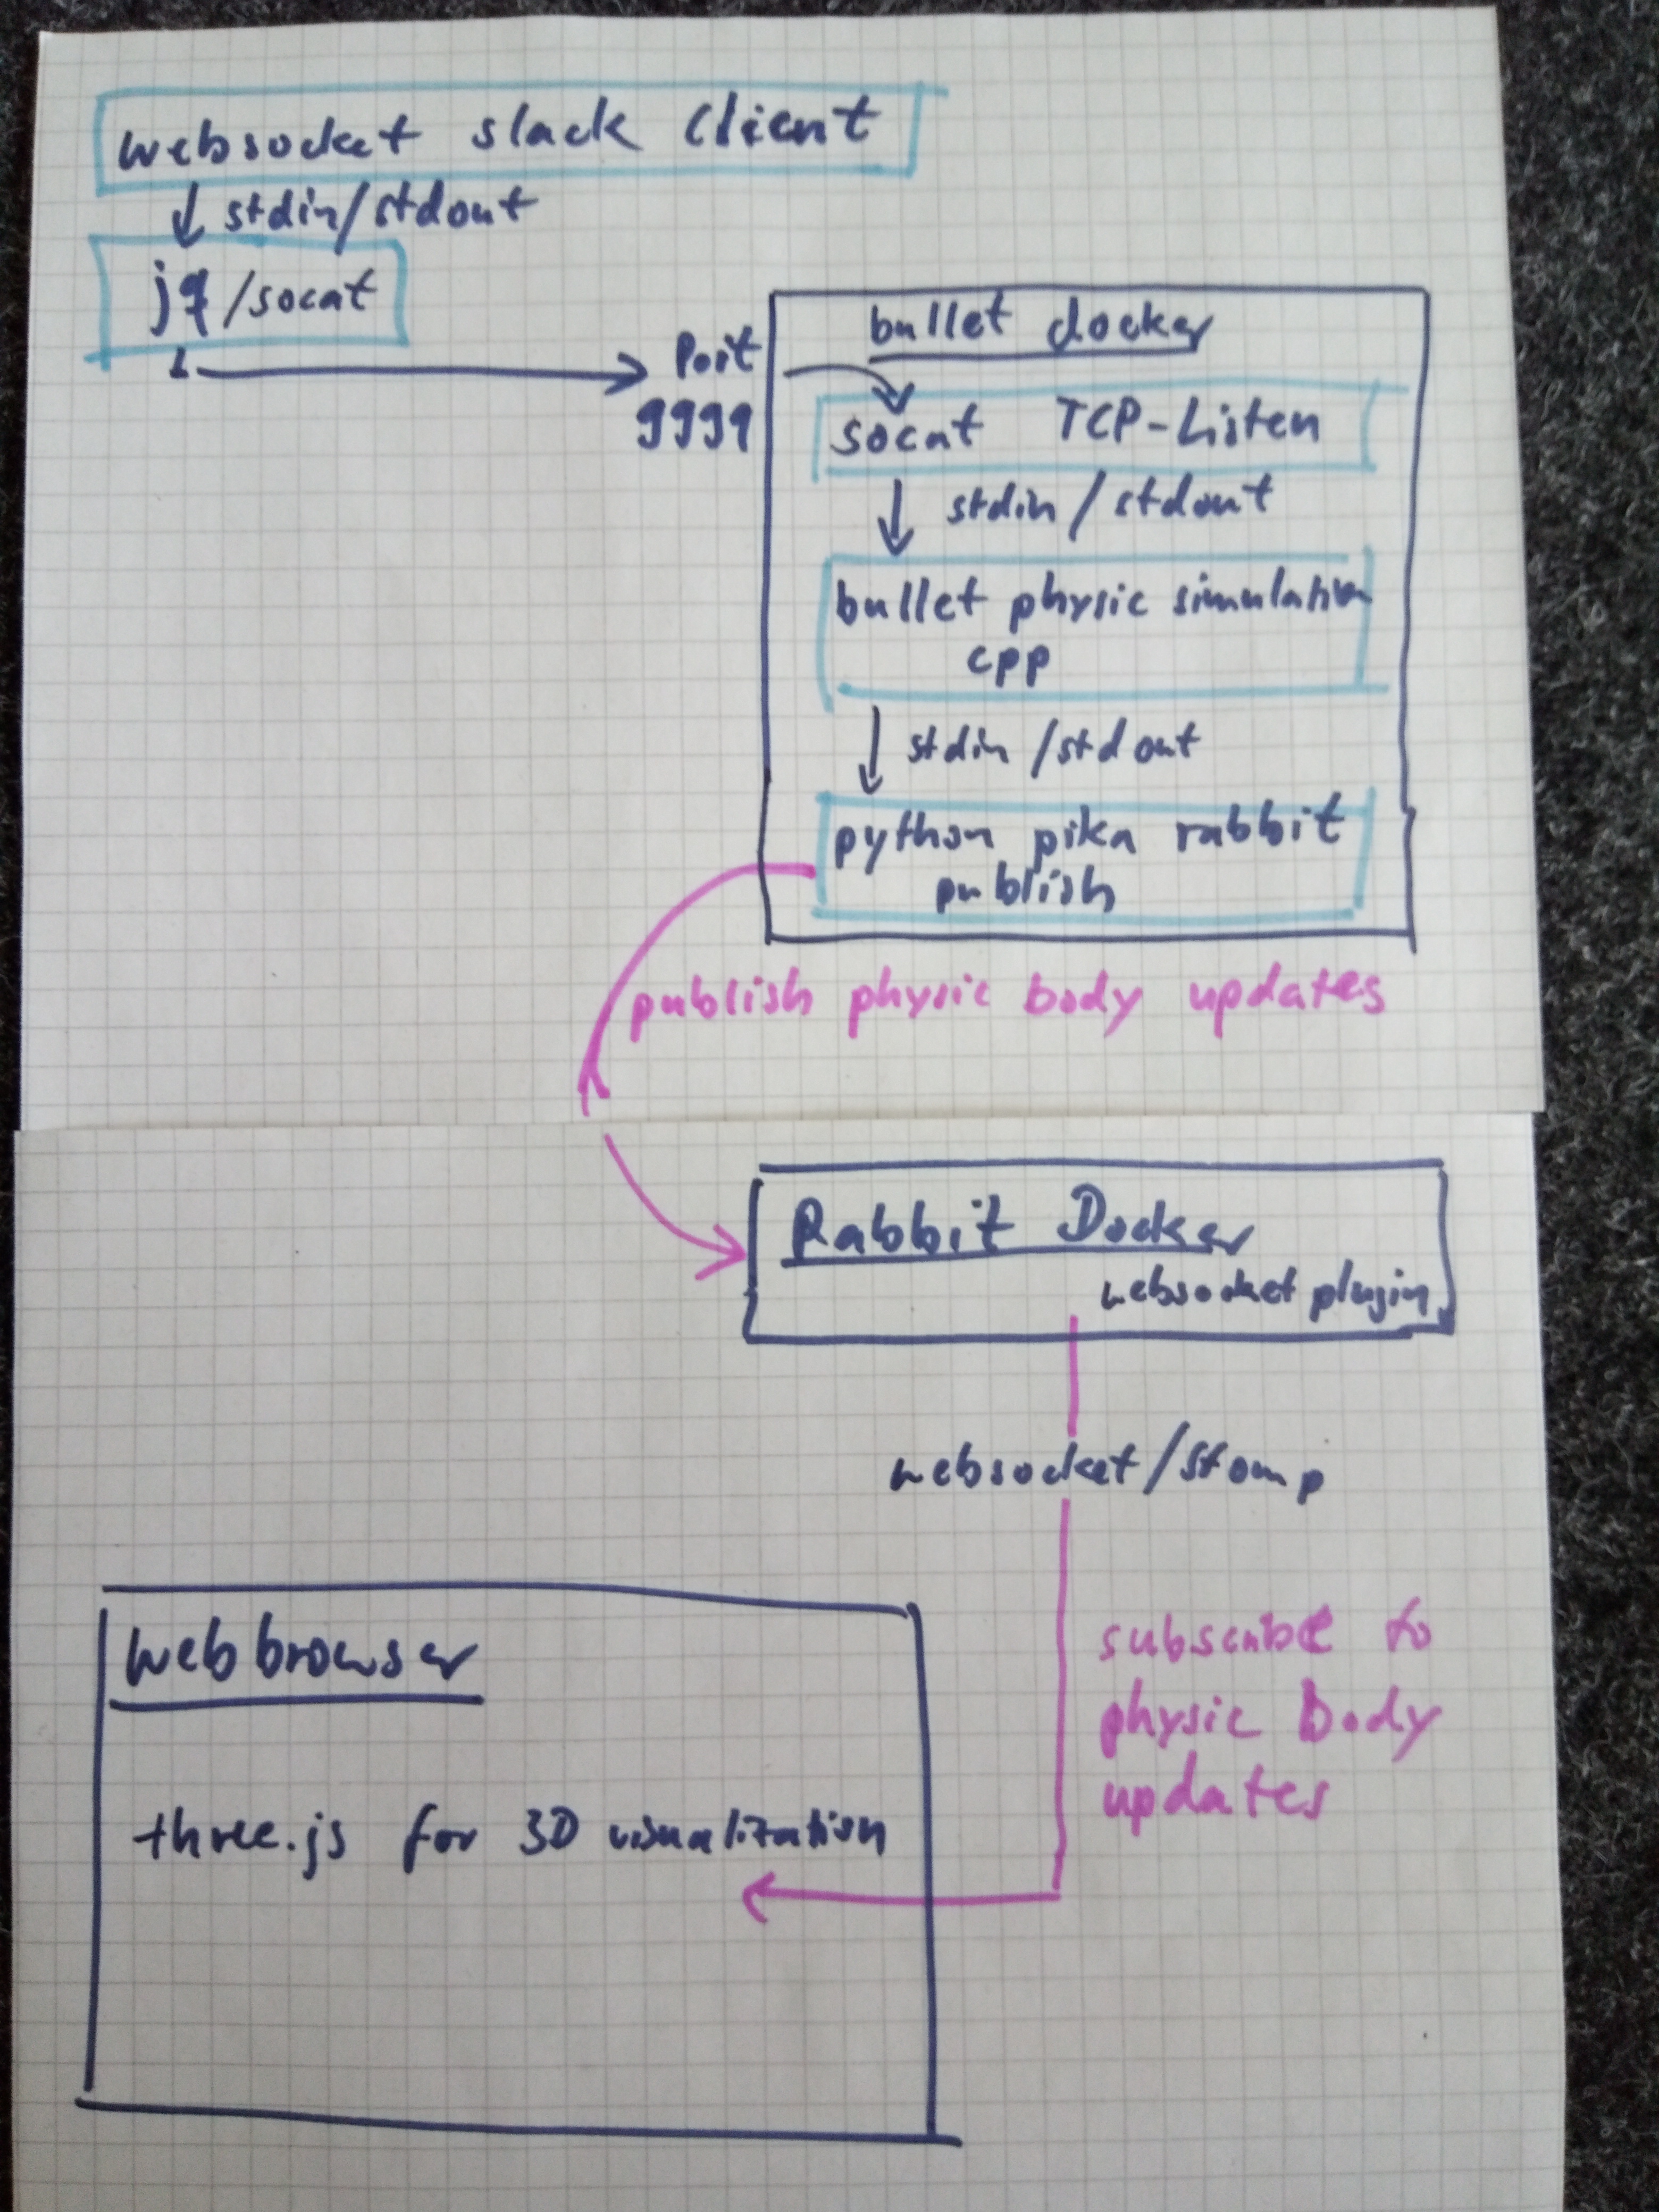 websocket slack client
stdin/stdout
jq/socat
Port
9999
bullet docker
socat TCP-Listen
stdin/stdout
bullet physic simulation
cpp
stdin/stdout
python pika rabbit
publish
publish physic body updates
Rabbit Docker
websocket plugin
websocket/stomp
subscribe to
physic Body
updates
webbrowser
three.js for 3D visualization